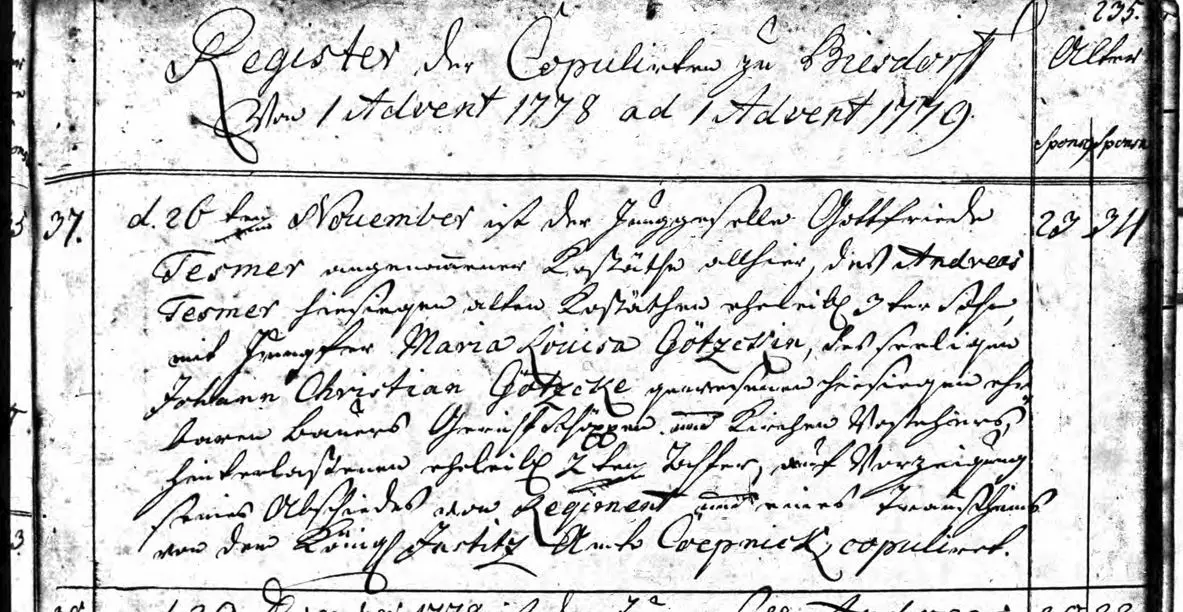 235.
Register der Copulirten zu Biesdorff
Von 1 Advent 1778 ad 1 Advent 1779.
Alter
Spons Sponsa
37. d. 26 ten November ist der Junggeselle Gottfriede 23 34
Tesmer angenommener Kossäthe allhier, des Andreas
Tesmer hiesigen alten Kossäthen eheleibl 3ter Sohn,
mit Jungfer Maria Louisa Götzckin, des seeligen
Johann Christian Götzcke gewesenen hiesigen ehr
baren Bauers Gericht Schöppen und Kirchen Vorstehers,
hinterlassenen eheleibl 2ten Tochter, auf Vorzeigung
seines Abschiedes von Regiment und eines Trauscheins
von dem Königl Justitz Amte Coepnick, copuliret.